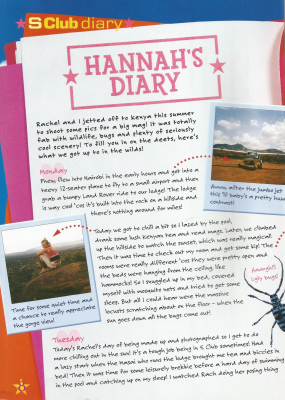 S Club diary
HANNAH'S
DIARY
Rachel and I jetted off to Kenya this summer
to shoot some pics for a big mag! It was totally
fab with wildlife, bugs and plenty of seriously
cool scenery! To fill you in on the deets, here's
what we got up to in the wilds!
Monday
Phew, flew into Nairobi in the early hours and got into a
teeny 12-seater plane to fly to a small airport and then
grab a bumpy Land Rover ride to our lodge! The lodge
is way cool 'cos it's built into the rock on a hillside and
there's nothing around for miles!
Awww, after the Jumbo Jet
this 'lil baby's a pretty huge
contrast!
Today we got to chill a bit so I lazed by the pool,
drank some lush Kenyan tea and read mags. Later, we climbed
up the hillside to watch the sunset, which was really magical!
Then it was time to check out my room and get some kip! The
rooms were really different 'cos they were pretty open and
the beds were hanging from the ceiling, like
hammocks! So I snuggled up in my bed, covered
myself with mosquito nets and tried to get some
sleep. But all I could hear were the massive
locusts scratching about on the floor - when the
sun goes down all the bugs come out!
Time for some quiet time and
a chance to really appreciate
the gorge view!
Aaargh!
Ugly bugs!
Tuesday
Today's Rachel's day of being made up and photographed so I get to do
more chilling out in the sun! It's a tough job being in S Club sometimes! Had
a lazy start when the Masai who runs the lodge brought me tea and biccies in
bed! Then it was time for some leisurely brekkie before a hard day of swimming
in the pool and catching up on my sleep! I watched Rach doing her posing thing